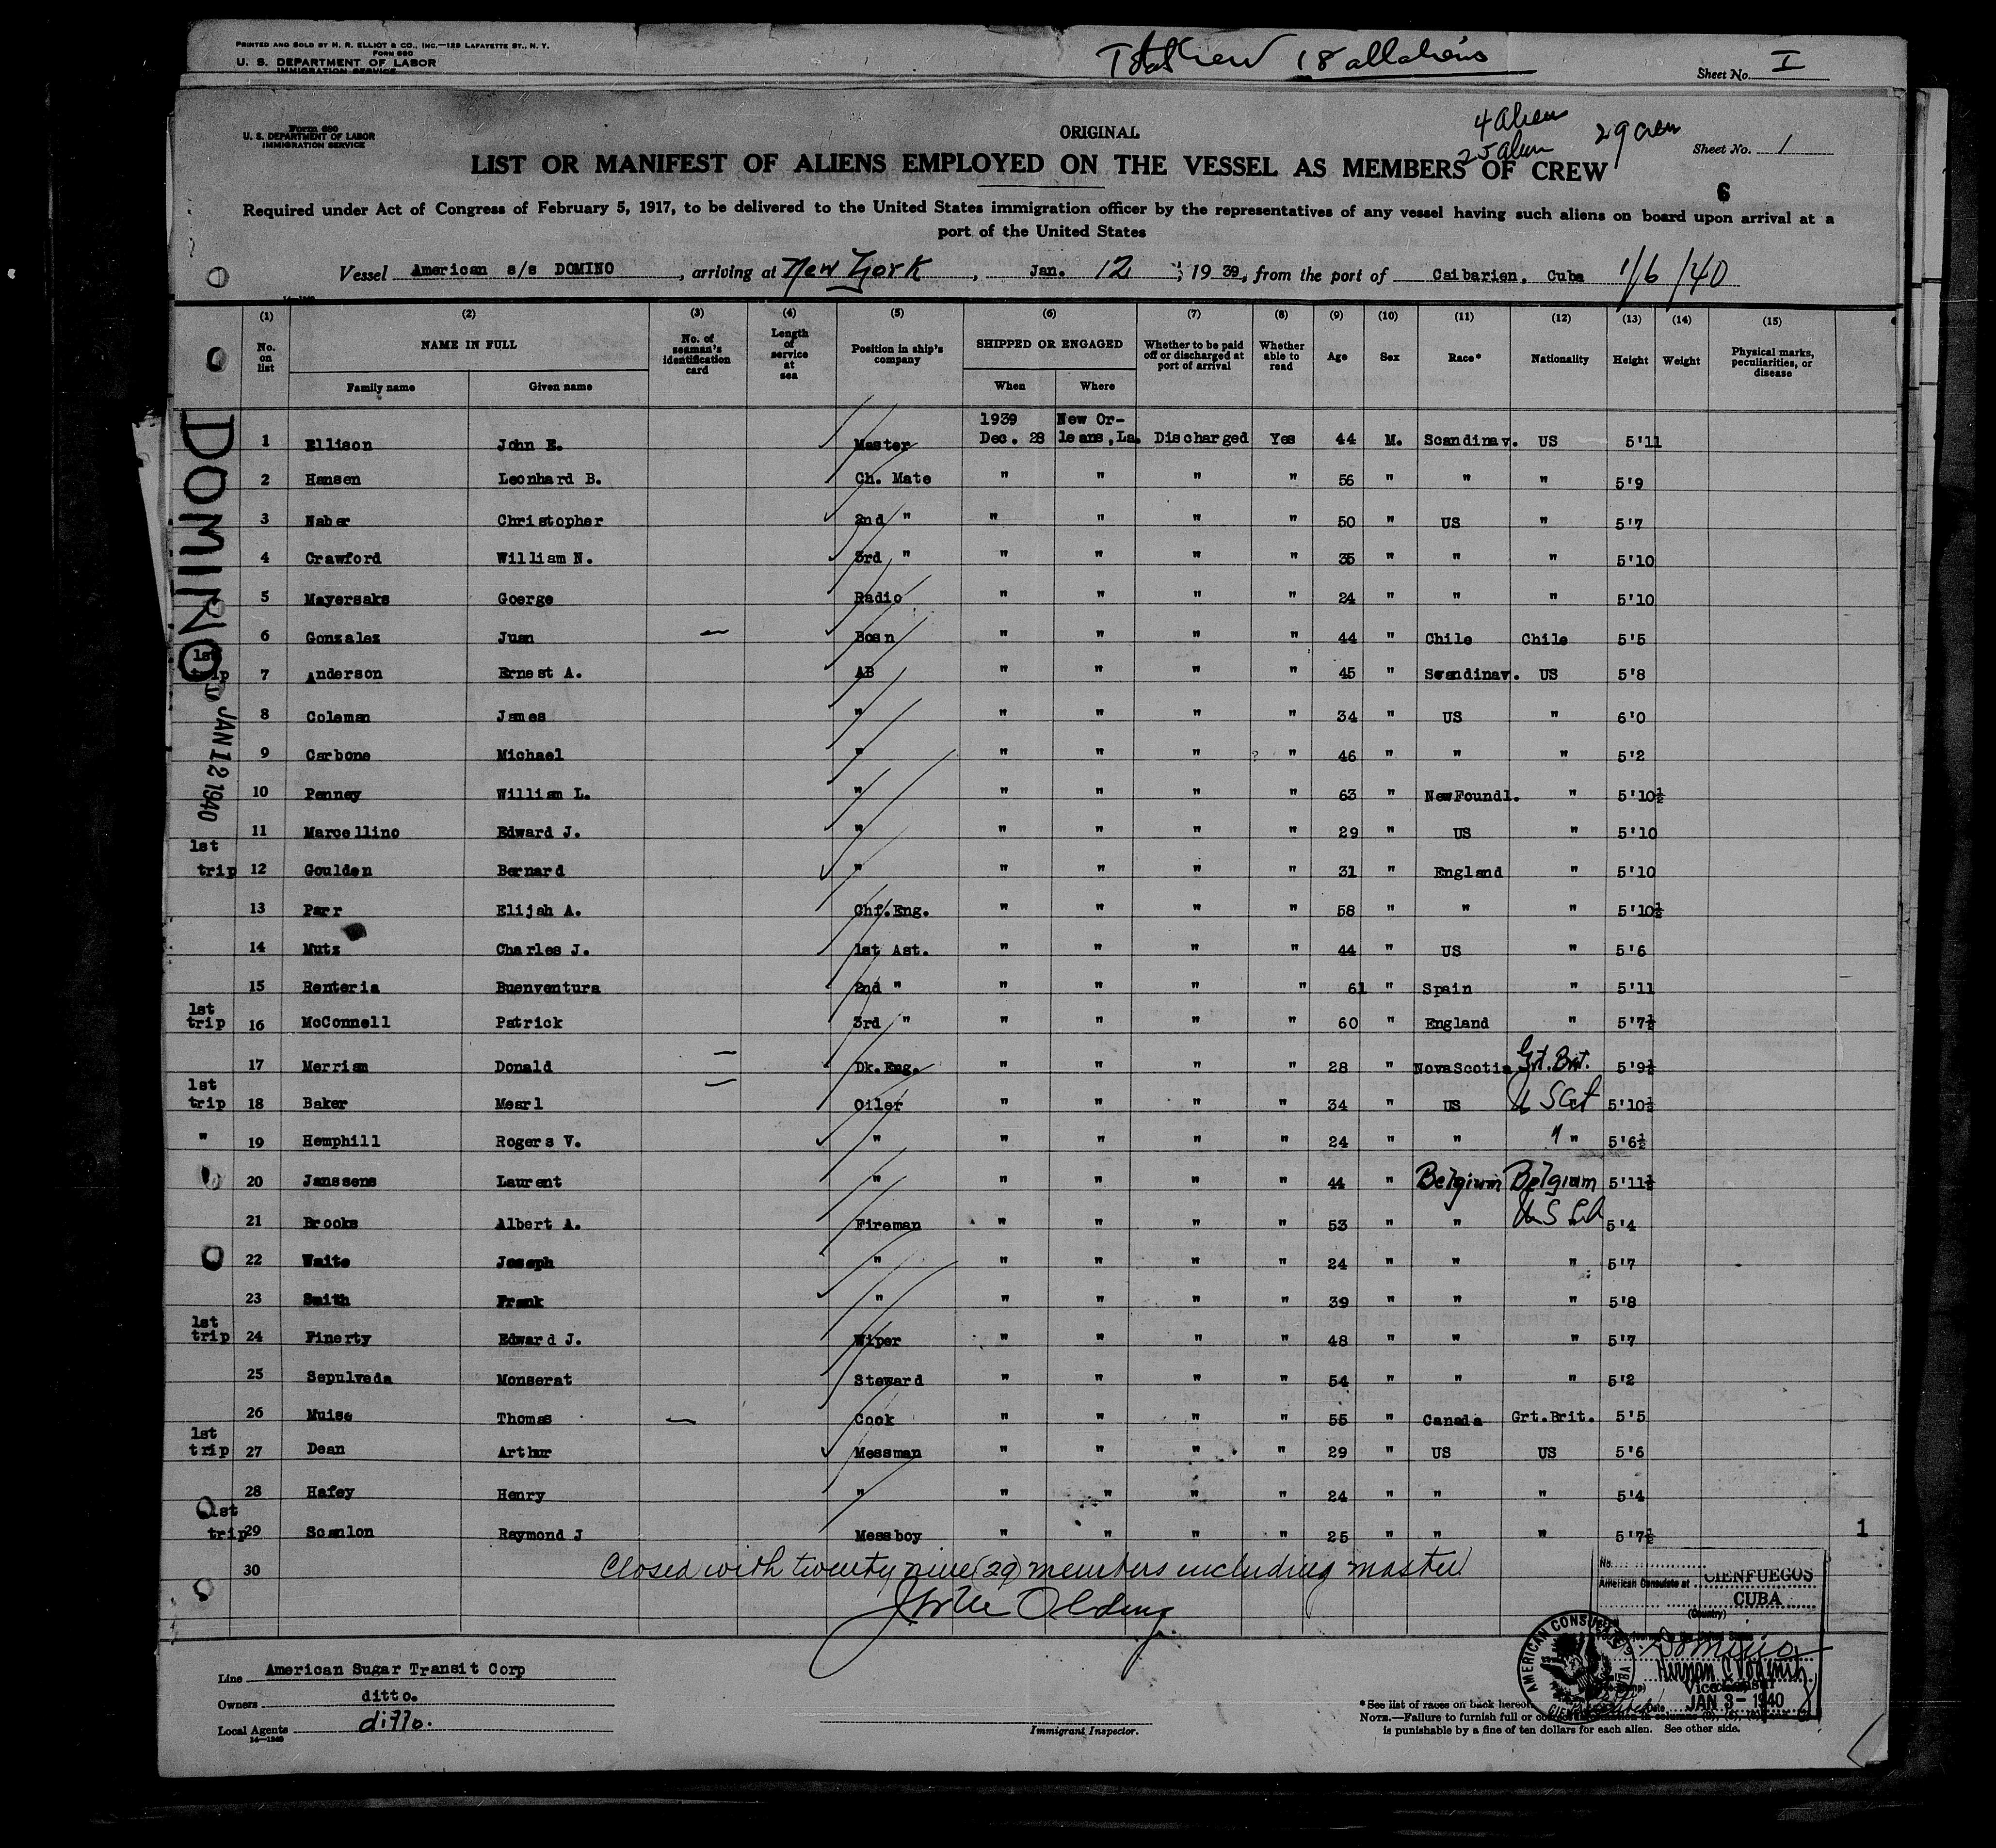 PRINTED AND SOLD BY H. R. ELLIOT & CO., INC.—129 LAFAYETTE ST., N. Y.
FORM 680
U. S. DEPARTMENT OF LABOR
IMMIGRATION SERVICE
Sheet No. I
Form 680
U. S. DEPARTMENT OF LABOR
IMMIGRATION SERVICE
ORIGINAL
4 alien
25 alien
29 crew
Sheet No. 1
LIST OR MANIFEST OF ALIENS EMPLOYED ON THE VESSEL AS MEMBERS OF CREW
6
Required under Act of Congress of February 5, 1917, to be delivered to the United States immigration officer by the representatives of any vessel having such aliens on board upon arrival at a
port of the United States
Vessel American s/s DOMINO, arriving at New York, Jan. 12, 19 39, from the port of Caibarien, Cuba 1/6/40
(1) (2) (3) (4) (5) (6) (7) (8) (9) (10) (11) (12) (13) (14) (15)
No. on list NAME IN FULL No. of seaman's identification card Length of service at sea Position in ship's company SHIPPED OR ENGAGED Whether to be paid off or discharged at port of arrival Whether able to read Age Sex Race* Nationality Height Weight Physical marks, peculiarities, or disease
Family name Given name When Where
DOMINO
JAN 12 1940
1 Ellison John E. Master 1939 Dec. 28 New Or-leans, La. Discharged Yes 44 M. Scandinav. US 5'11
2 Hansen Leonhard B. Ch. Mate " " " " 56 " " " 5'9
3 Naber Christopher 2nd " " " " " 50 " US " 5'7
4 Crawford William N. 3rd " " " " " 35 " " " 5'10
5 Mayersaks Goerge Radio " " " " 24 " " " 5'10
6 Gonzalez Juan Bosn " " " " 44 " Chile Chile 5'5
1st trip 7 Anderson Ernest A. AB " " " " 45 " Scandinav. US 5'8
8 Coleman James " " " " " 34 " US " 6'0
9 Carbone Michael " " " " ? " 46 " " " 5'2
10 Penney William L. " " " " " 63 " NewFoundl. " 5'10½
11 Marcellino Edward J. " " " " " 29 " US " 5'10
1st trip 12 Goulden Bernard " " " " " 31 " England " 5'10
13 Parr Elijah A. Chf.Eng. " " " " 58 " " " 5'10½
14 Mutz Charles J. 1st Ast. " " " " 44 " US " 5'6
15 Renteria Buenventura 2nd " " " " " 61 " Spain " 5'11
1st trip 16 McConnell Patrick 3rd " " " " " 60 " England " 5'7½
17 Merriam Donald Dk.Eng. " " " " 28 " NovaScotia Grt. Brit. 5'9½
1st trip 18 Baker Mearl Oiler " " " " 34 " US 5'10½
" 19 Hemphill Rogers V. " " " " " 24 " " " 5'6½
20 Janssens Laurent " " " " " 44 " Belgium Belgium 5'11½
21 Brooks Albert A. Fireman " " " " 53 " " 5'4
22 Waite Joseph " " " " " 24 " " " 5'7
23 Smith Frank " " " " " 39 " " " 5'8
1st trip 24 Finerty Edward J. Wiper " " " " 48 " " " 5'7
25 Sepulveda Monserat Steward " " " " 54 " " " 5'2
26 Muise Thomas Cook " " " " 55 " Canada Grt.Brit. 5'5
1st trip 27 Dean Arthur Messman " " " " 29 " US US 5'6
28 Hafey Henry " " " " " 24 " " " 5'4
1st trip 29 Scanlon Raymond J Messboy " " " " 25 " " " 5'7½
1
30 Closed with twenty nine (29) members including master
No.
American Consulate at CIENFUEGOS
CUBA
(Country)
AMERICAN CONSULAR
Vice Consul
Date JAN 3 - 1940
Line American Sugar Transit Corp
Owners ditto.
Local Agents ditto.
14—1240
Immigrant Inspector.
*See list of races on back hereof
NOTE.—Failure to furnish full or
is punishable by a fine of ten dollars for each alien. See other side.